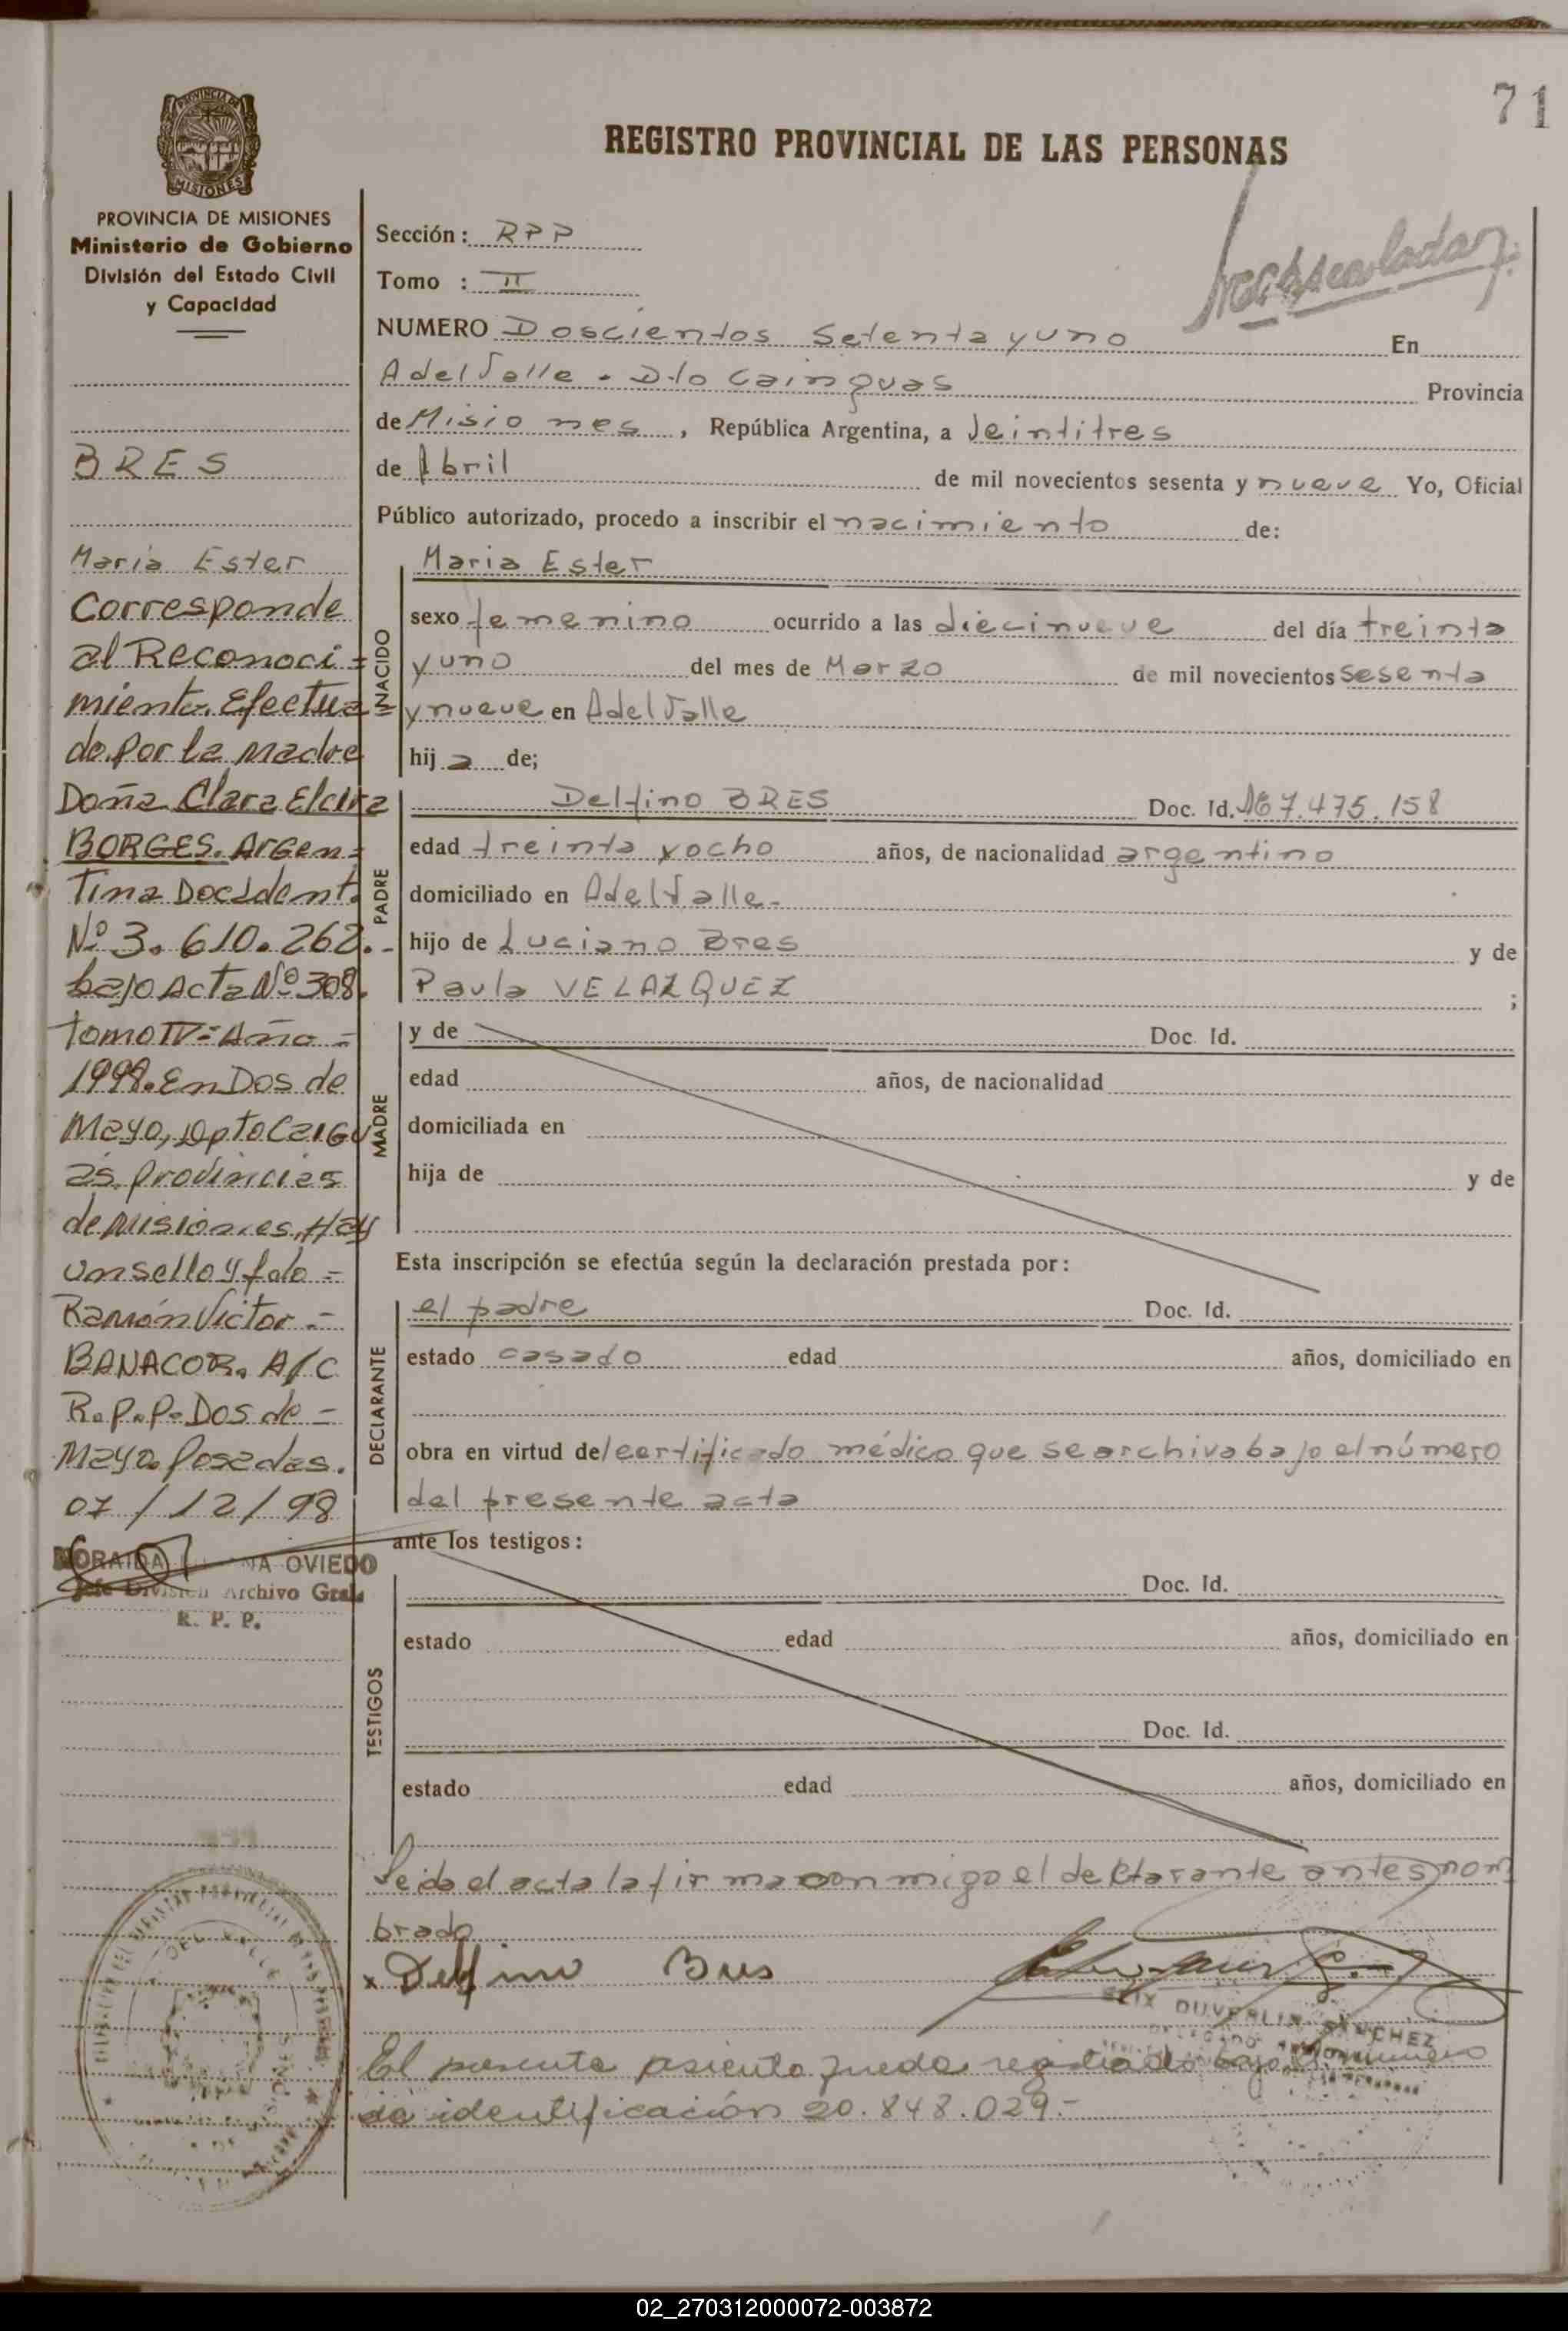 71
REGISTRO PROVINCIAL DE LAS PERSONAS
PROVINCIA DE MISIONES
MISIONES
PROVINCIA DE MISIONES
Ministerio de Gobierno
División del Estado Civil
y Capacidad
BRES
Maria Ester
Corresponde
al Reconoci=
miento. Efectua=
do. Por la madre
Doña Clara Elcira
BORGES. Argen=
Tina Doc Ident.
Nº 3. 610. 262.-
bajo Acta Nº 308.
Tomo IV= Año =
1998. En Dos de
Mayo, Dpto Caigu
as. provincias
de Misiones. Hay
un sello y fdo =
Ramón Victor =
BANACOR. A/C
R.P.P. Dos de =
Mayo. Posadas.
07 / 12 / 98
OVIEDO
Jefe División Archivo Gral.
R. P. P.
Sección: RPP
Tomo : II
NUMERO Doscientos Setenta y uno En
A del Valle - Dto Cainguas Provincia
de Misiones , República Argentina, a Veintitres
de Abril de mil novecientos sesenta y nueve Yo, Oficial
Público autorizado, procedo a inscribir el nacimiento de:
NACIDO
Maria Ester
sexo femenino ocurrido a las diecinueve del día treinta
y uno del mes de Marzo de mil novecientos sesenta
y nueve en A del Valle
hija de;
PADRE
Delfino BRES Doc. Id. 7.475.158
edad treinta y ocho años, de nacionalidad argentino
domiciliado en A del Valle-
hijo de Luciano Bres y de
Paula VELAZQUEZ ;
MADRE
y de Doc. Id.
edad años, de nacionalidad
domiciliada en
hija de y de
Esta inscripción se efectúa según la declaración prestada por:
DECLARANTE
el padre Doc. Id.
estado casado edad años, domiciliado en
obra en virtud del certificado médico que se archiva bajo el número
del presente acta
ante los testigos:
TESTIGOS
Doc. Id.
estado edad años, domiciliado en
Doc. Id.
estado edad años, domiciliado en
Leida el acta la firma conmigo el declarante antes nom
brado
x Delfino Bres
FELIX DUVERLIN SANCHEZ
El presente asiento queda registrado bajo el número
de identificación 20.848.029.-
02_270312000072-003872